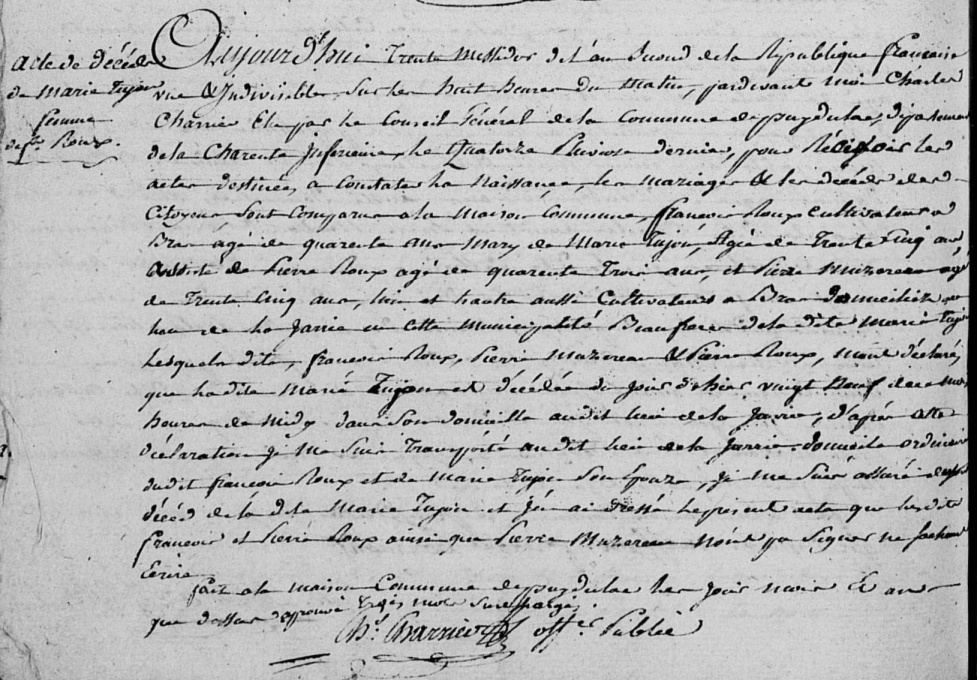 acte de décéds
de Marie Tujon
femme
de fs. Roux.
Aujourd'hui Trente Messidor de l'an Second de la République française
une & Indivisible, Sur les huit heures du Matin, pardevant moi Charles
Charrier Elu par le Conseil Général de la Commune de puydulac, département
de la Charente Inférieure, le Quatorze Pluviose dernier, pour Recevoir les
actes destinés a Constater la Naissance, les mariages & les décéds des
Citoyens Sont Comparus a la Maison Commune, françois Roux Cultivateur a
Bras agé de quarente ans Mary de Marie Tujon, Agée de Trente Cinq ans,
assisté de Pierre Roux agé de quarente Trois ans, et Pierre Muzereau agé
de Trente Cinq ans, lun et lautre aussi Cultivateurs a Bras domiciliés au
lieu de la Jarrie en cette Municipalité Beaufrere de la dite Marie Tujon
Lesquels dits, françois Roux, Pierre Muzereau & Pierre Roux, m'ont déclaré,
que la dite Marie Tujon est décédée du jour d'hier vingt Neuf de ce mois,
heures de midy dans Son domicille audit lieu de la Jarrie, d'après cette
déclaration je me Suis Transporté audit lieu de la Jarrie domicile ordinaire
dudit françois Roux et de Marie Tujon Son Epouze, je me Suis assuré du
décéd de la dite Marie Tujon et j'en ai dressé le present acte que lesdits
françois et Pierre Roux ainsi que Pierre Muzereau n'ont pu Signer ne sachant
Ecrire
fait a la maison Commune de puydulac les jour mois & an
que dessus approuvé Trois mots Surchargés.
Chs. Charrier offer. Public